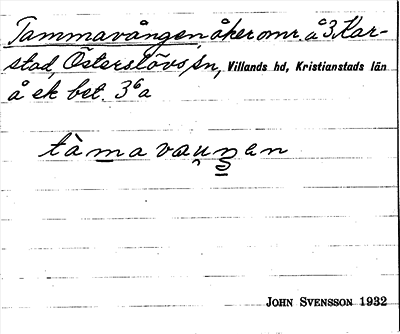 Tammavången, åkeromr. å 3, Kar-
stad, Österslövs sn, Villands hd, Kristianstads län
å ek. bet. 3⁶a
tàmavauṉen
JOHN SVENSSON 1932